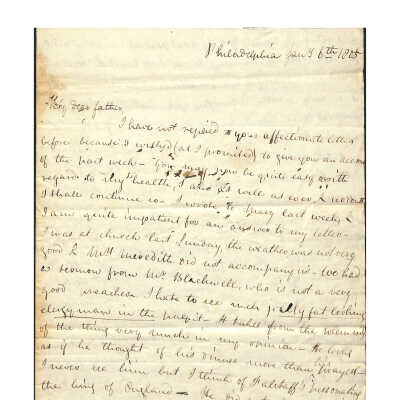 Philadelphia Jany 6th 1805
My dear father
I have not replied to your affectionate letter
before because I wished (as I promised) to give you an account
of the past week – You may be quite easy with
regard to my health, I am as well as ever &
I shall continue so – I wrote to last week –
I am quite impatient for an answer to my letter –
I was at church last Sunday, the weather was not very
good & Mrs Meredith did not accompany us – we had
a sermon from Mr Blackwell, who is not a very
good preacher. I hate to see such jolly fat looking
clergymen in the pulpit – it takes from the solemnity
of the thing very much in my opinion – He looks
as if he thought of his dinner more than prayed –
I never see him but I think of Falstaff's personating
the king of England – He did